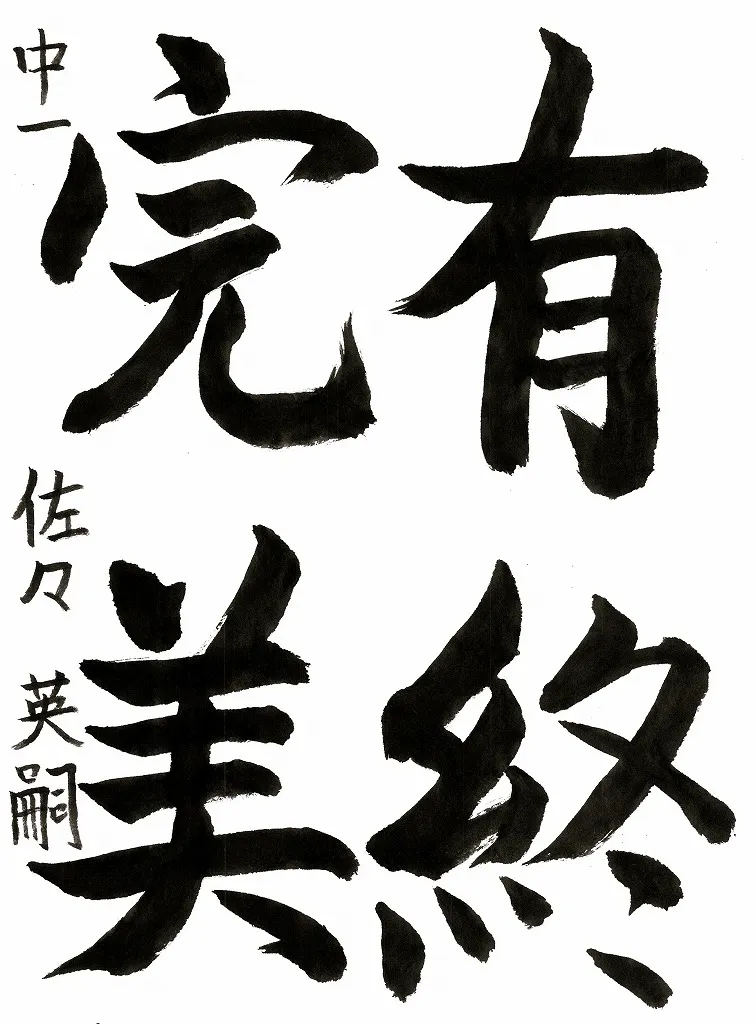 有終
完美
中一 佐々 英嗣